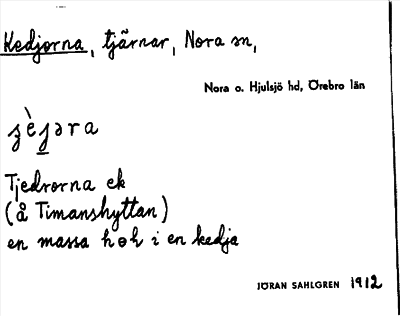 Kedjorna, tjärnar, Nora sn,
Nora o. Hjulsjö hd, Örebro län
Tjedrorna ek
(å Timanshyttan)
en massa høh i en kedja
JÖRAN SAHLGREN 1912